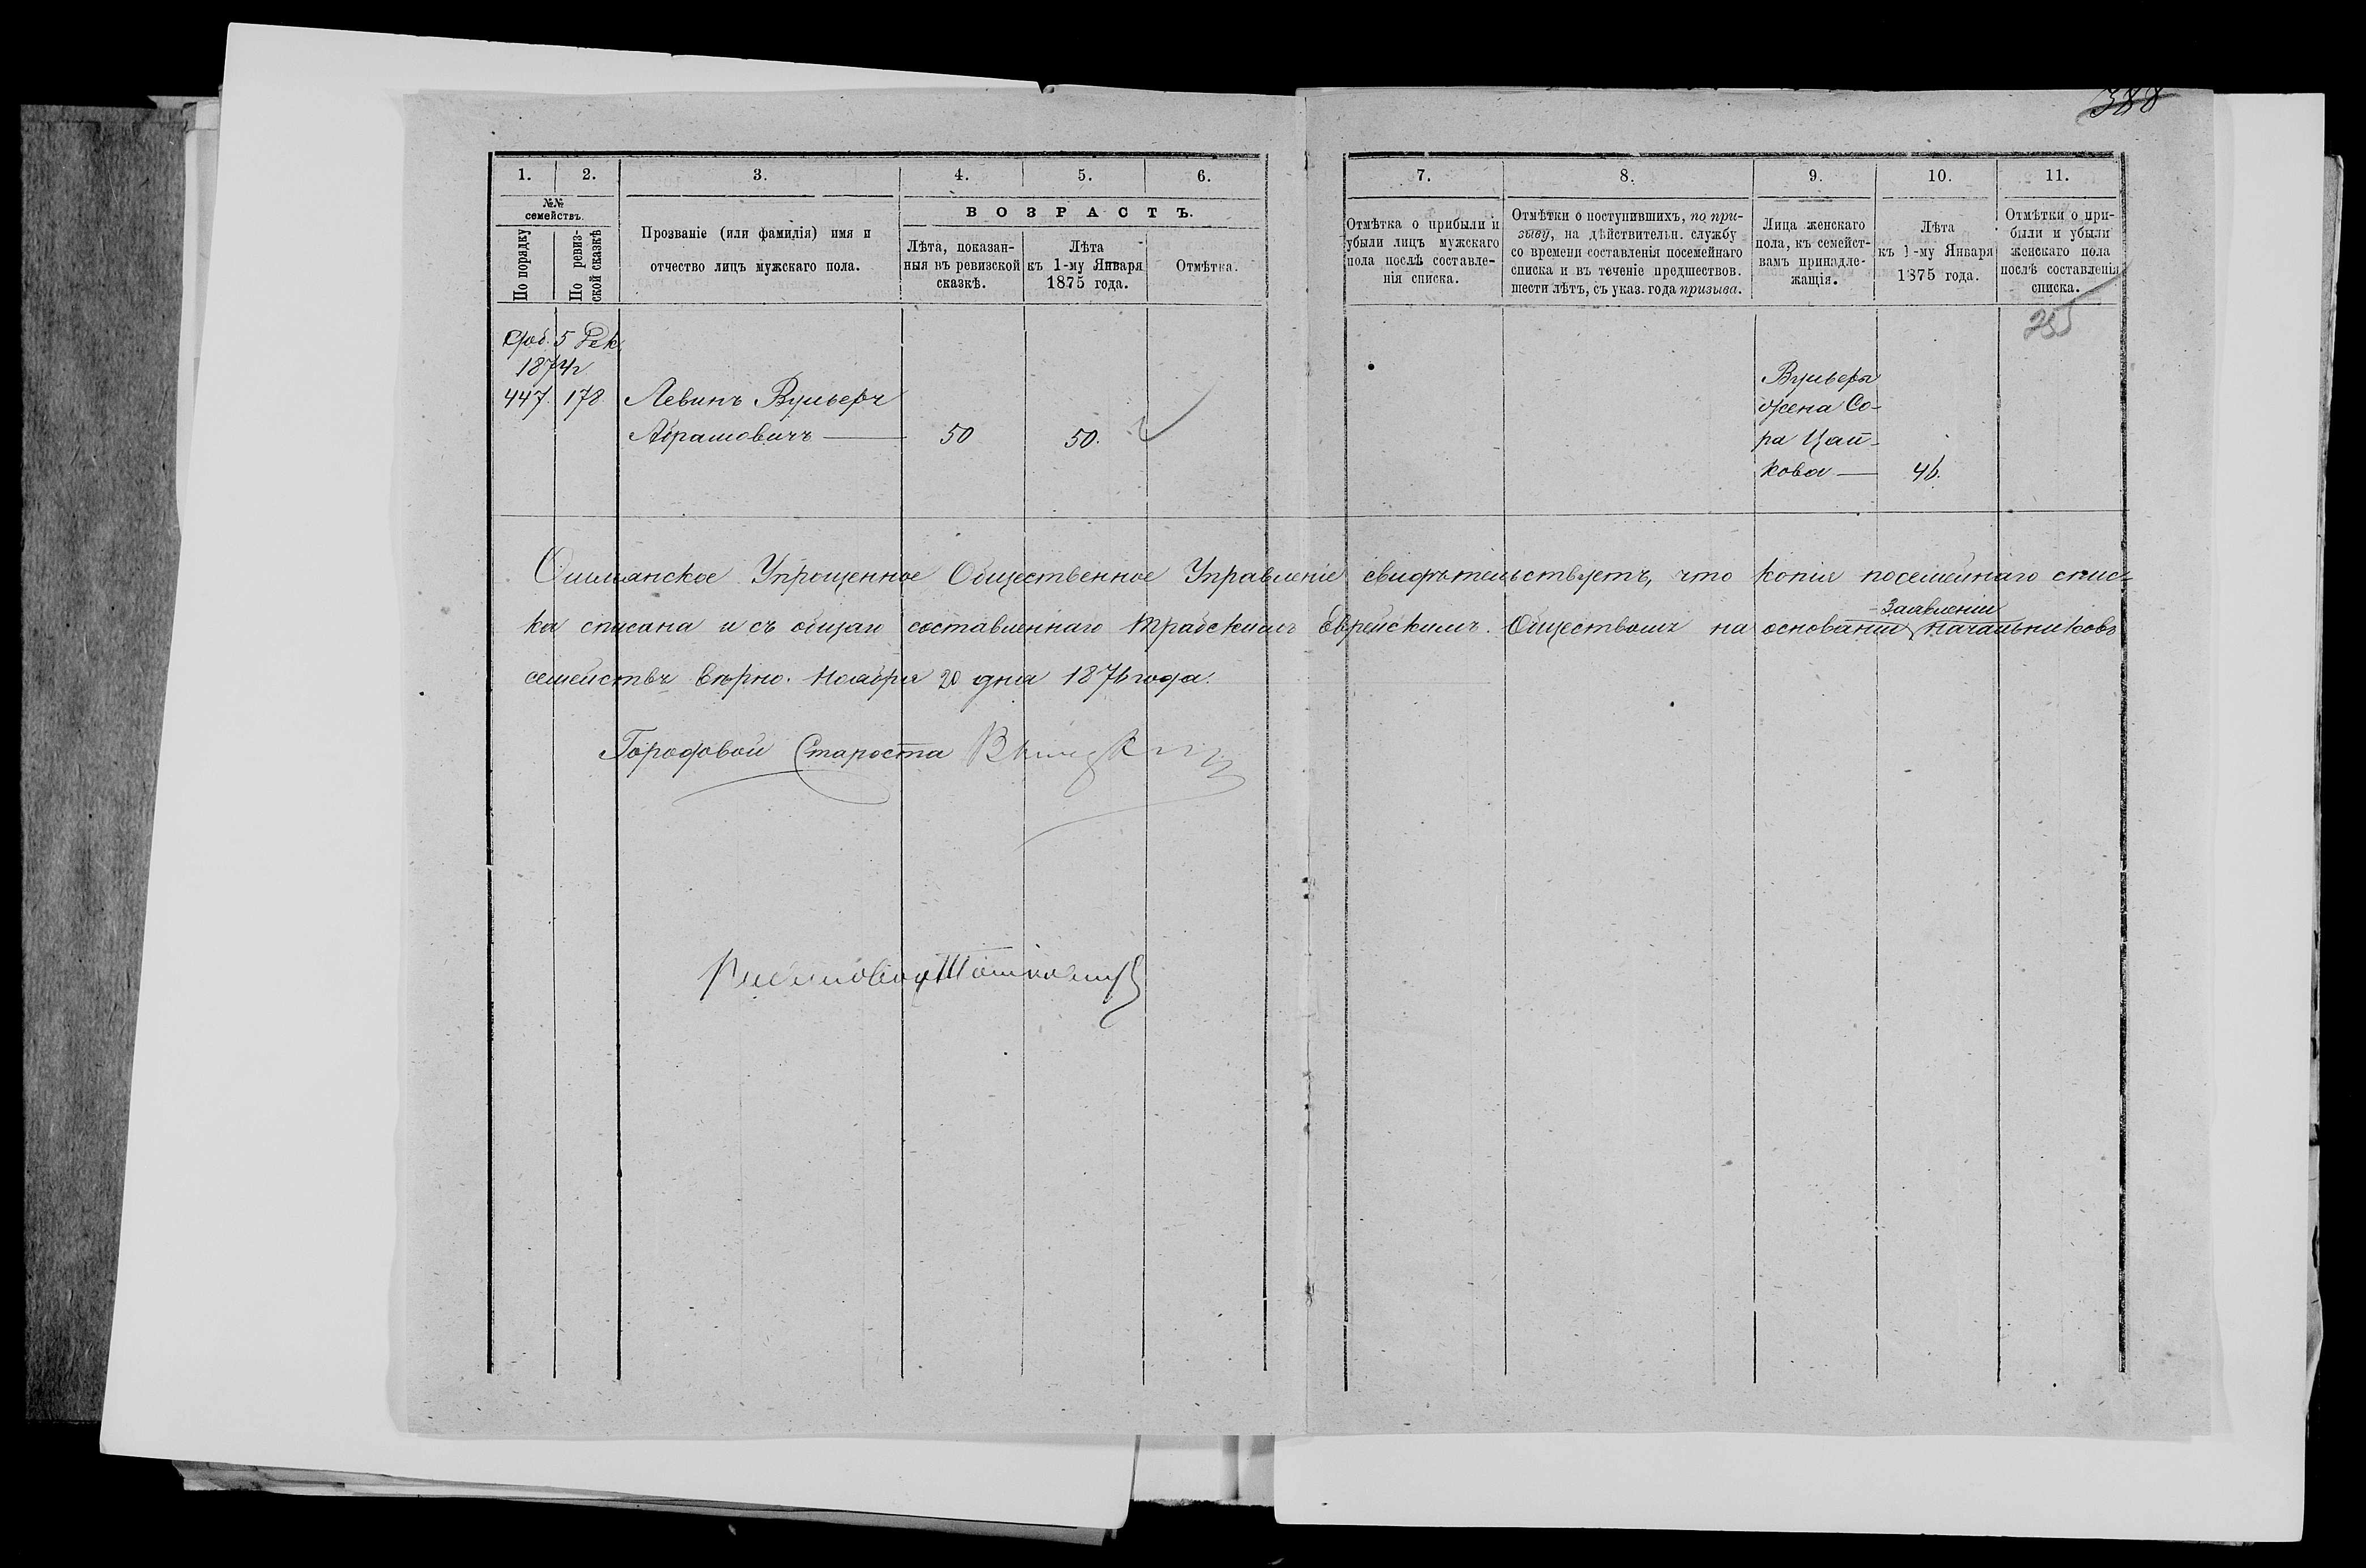 388
1. 2. 3. 4. 5. 6.
№№ семействъ.
По порядку
По ревиз-
ской сказкѣ
Прозваніе (или фамилія) имя и
отчество лицъ мужскаго пола.
ВОЗРАСТЪ.
Лѣта, показан-
ныя въ ревизской
сказкѣ.
Лѣта
къ 1-му Января
1875 года.
Отмѣтка.
5 Дек.
1874г
447. 178. Левинъ Вульфъ
Абрамовичъ — 50 50.
7. 8. 9. 10. 11.
Отмѣтка о прибыли и
убыли лицъ мужскаго
пола послѣ составле-
нія списка.
Отмѣтки о поступившихъ, по при-
зыву, на дѣйствительн. службу
со времени составленія посемейнаго
списка и въ теченіе предшествов.
шести лѣтъ, съ указ. года призыва.
Лица женскаго
пола, къ семейст-
вамъ принадле-
жащія.
Лѣта
къ 1-му Января
1875 года.
Отмѣтки о при-
были и убыли
женскаго пола
послѣ составленія
списка.
255
Вульфа
жена Со-
ра
кова — 46.
Ошмянское Упрощенное Общественное Управленіе свидѣтельствуетъ, что копія посемейнаго спис-
ка списана и съ общаго составленнаго Трабскимъ Еврейскимъ Обществомъ на основаніи заявленіи начальниковъ
семействъ вѣрно. Ноября 20 дня 1876 года.
Городовой Староста